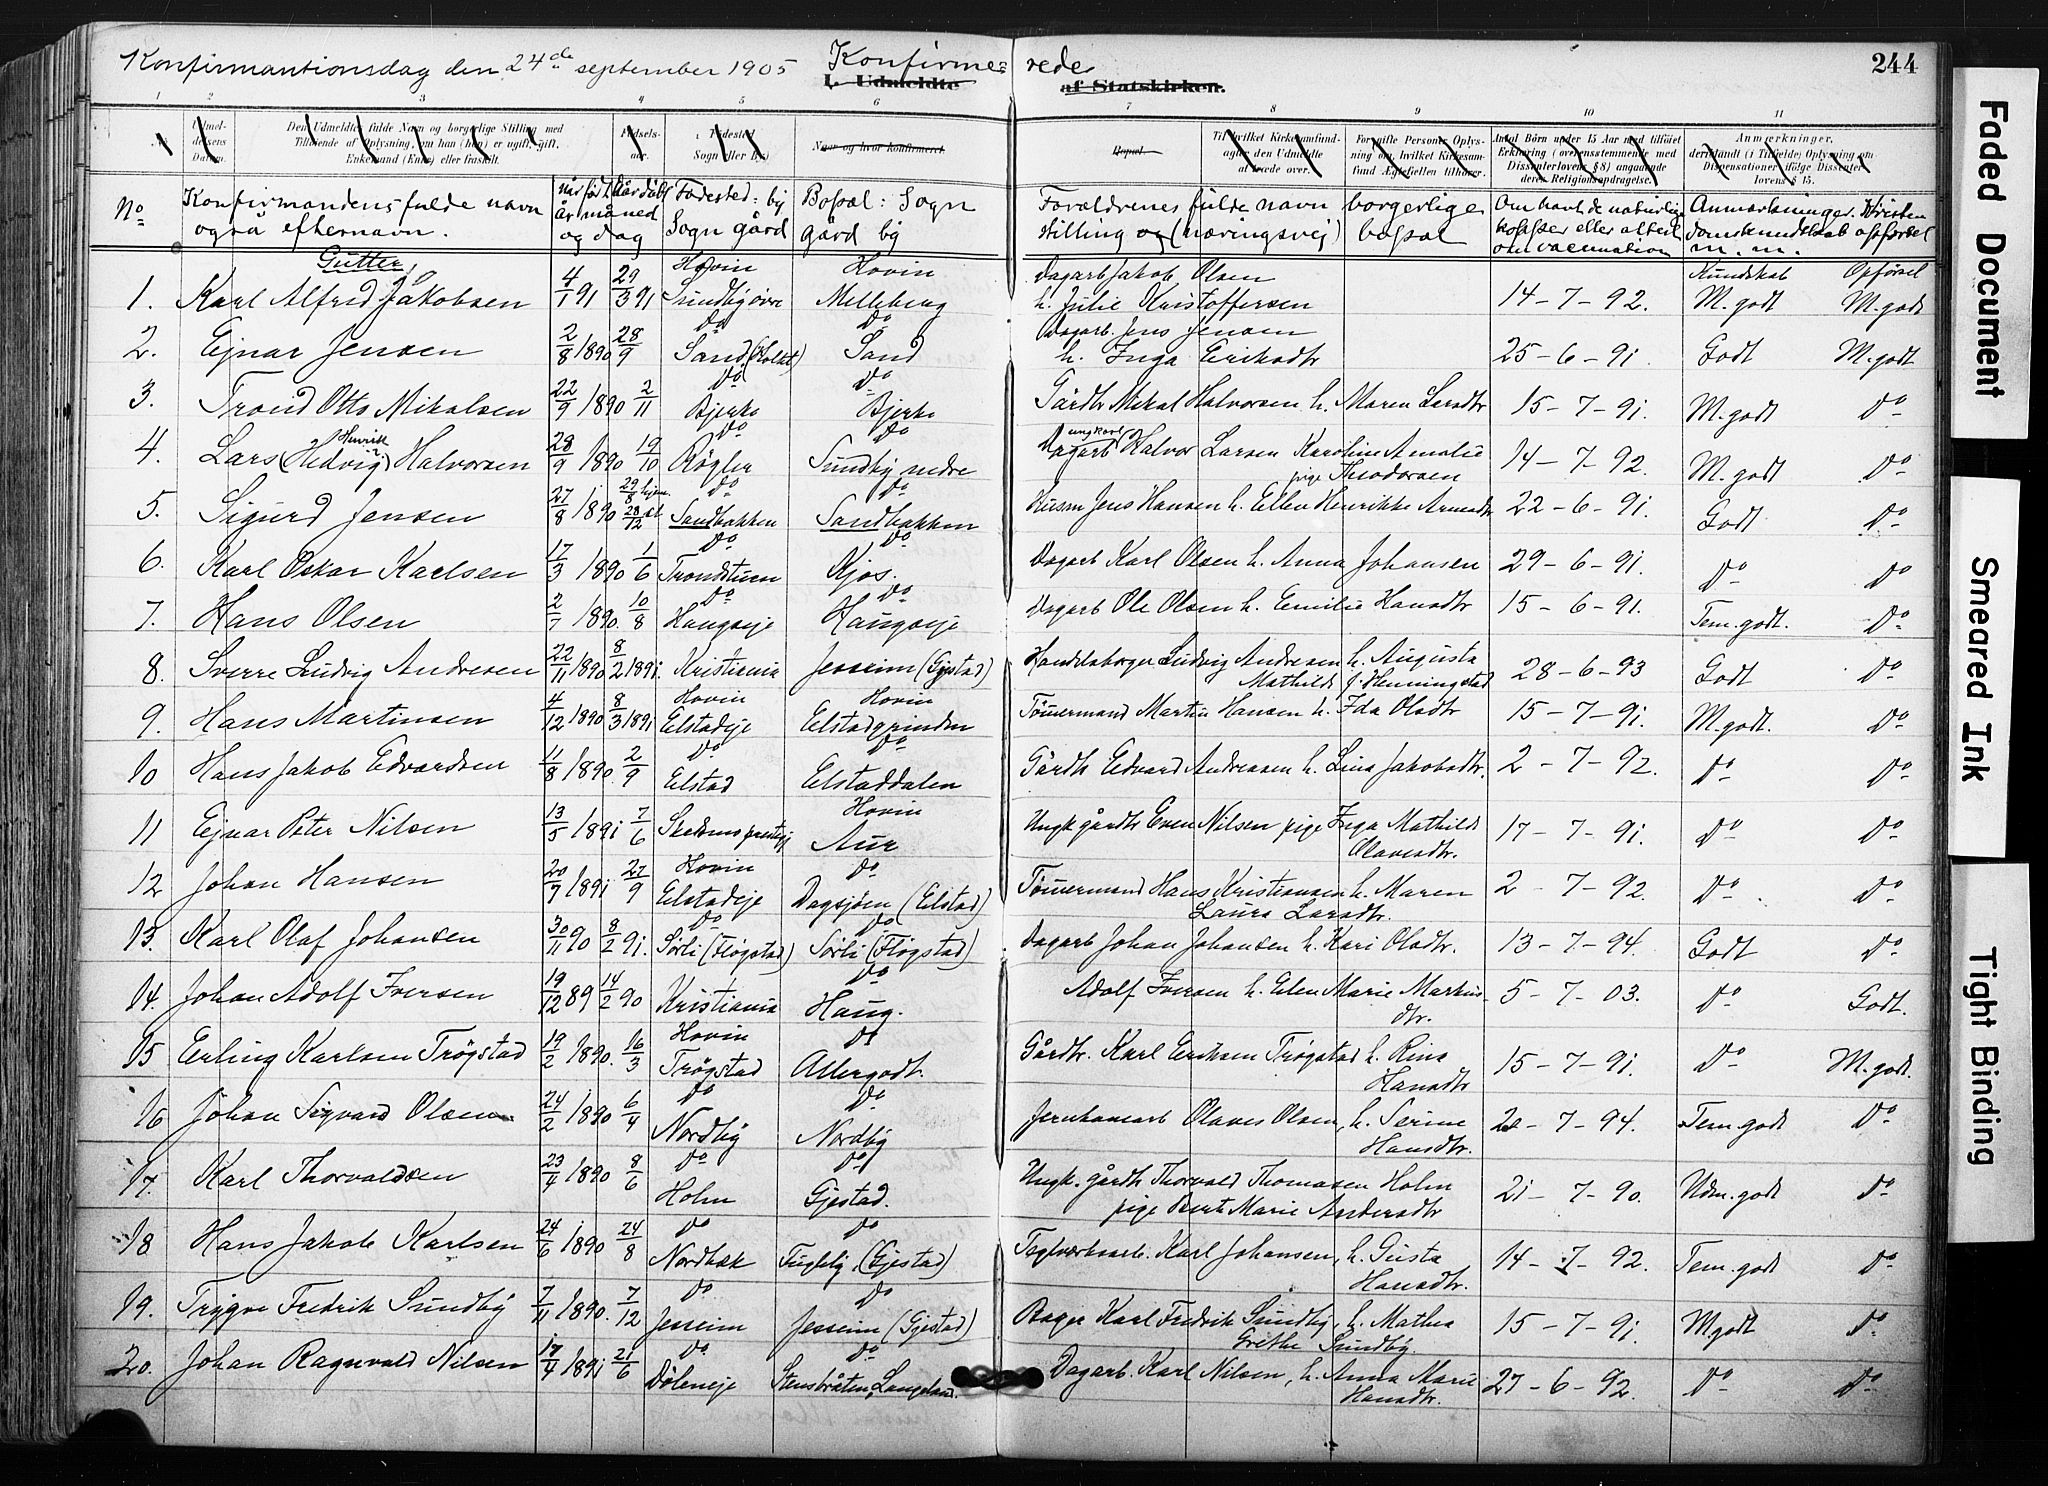 Konfirmantionsdag den 24de september 1905 Konfirme- rede
L. Udmeldte af Statskirken.
244
1 2 3 4 5 6 7 8 9 10 11
Udmeldelsens Datum.
Den Udmeldtes fulde Navn og borgerlige Stilling med Tilføiende af Oplysning, om han (hun) er ugift, gift, Enkemand (Enke) eller fraskilt.
Fødselsaar.
Fødested Sogn eller By.
Naar og hvor konfirmeret
Bopæl
Til hvilket Kirkesamfund agter den Udmeldte at træde over.
For gifte Personer Oplysning om, hvilket Kirkesamfund Ægtefællen tilhører.
Antal Børn under 15 Aar med tilføiet Erklæring (overensstemmende med Dissenterlovens § 8) angaaende deres Religionsopdragelse.
Anmerkninger, deriblandt (i Tilfælde) Oplysning om Dispensationer ifølge Dissenterlovens § 15.
No
Konfirmandens fulde navn også efternavn.
Når født År måned og dag
Når døbt
Fødested: by Sogn gård
Bopæl: Sogn gård by
Forældrenes fulde navn borgerlige stilling og (næringsvej) bopæl
Om havt de naturlige kopper eller attest om vaccination
Anmærkninger. Kristendomskundskab opførsel m. m.
Gutter
Kundskab Opførsel
1. Karl Alfred Jakobsen 4/1 91 29/3 91 Hovin Sundby øvre Hovin Melleberg Dagarb Jakob Olsen h. Julie Kristoffersen 14-7-92. M. godt M. godt
2. Ejnar Jensen 2/8 1890 28/9 Do Sand (Holet) Do Sand Dagarb. Jens Jensen h. Inga Eriksdtr 25-6-91 Godt M. godt
3. Trond Otto Mikalsen 22/9 1890 2/11 Do Bjerke Do Bjerke Gårdbr Mikal Halvorsen h. Maren Larsdtr 15-7-91. M. godt Do
4. Lars (Hedvig) Henrik Halvorsen 28/9 1890 19/10 Do Røgler Do Sundby nedre Dagarb ungkarl Halvor Larsen Karoline Amalie pige Theodorsen 14-7-92. M. godt Do
5. Sigurd Jensen 27/8 1890 29/8 hjem. 28/12 Do Sandbakken Do Sandbakken Husm Jens Hansen h. Ellen Henrikke Arnesdtr 22-6-91. Godt Do
6. Karl Oskar Karlsen 17/3 1890 1/6 Do Trondstuen Do Kjos. Dagarb Karl Olsen h. Anna Johansen 29-6-91. Do Do
7. Hans Olsen 2/7 1890. 10/8 Do Haugseje Do Haugseje Dagarb Ole Olsen h. Emilie Hansdtr 15-6-91. Tem. godt. Do
8. Sverre Ludvig Andresen 22/11 1890 8/2 1891. Kristiania Jesseim (Gjestad) Handelsborger Ludvig Andresen h. Augusta Mathilde f. Henningstad 28-6-93 Godt Do
9. Hans Martinsen 4/12 1890 8/3 1891 Hovin Elstadeje Hovin Elstadgrinden Tømmermand Martin Hansen h. Ida Olsdtr 15-7-91. M. godt. Do
10 Hans Jakob Edvardsen 11/8 1890. 2/9 Do Elstad Do Elstaddalen Gårdb Edvard Andreasen h. Lina Jakobsdtr. 2-7-92. Do Do
11 Ejnar Peter Nilsen 13/5 1891 7/6 Skedsmo prestgj Hovin Aur Ungk gårdbr Even Nilsen pige Inga Mathilde Olavesdtr. 17-7-91. Do Do
12 Johan Hansen 20/7 1891 27/9 Hovin Elstadeje Do Dagsjøen (Elstad) Tømmermand Hans Kristiansen h. Maren Laura Larsdtr. 2-7-92. Do Do
13. Karl Olaf Johansen 30/11 90 8/2 91. Do Sørli (Fløgstad) Do Sørli (Fløgstad) Dagarb Johan Johansen h. Kari Olsdtr. 13-7-94. Godt Do
14. Johan Adolf Iversen 19/12 89 14/2 90 Kristiania Do Haug. Adolf Iversen h. Elen Marie Markusdtr. 5-7-03. Do Godt.
15 Erling Karlsen Trøgstad 19/2 1890. 16/3 Hovin Trøgstad Do Allergodt. Gårdbr. Karl Eriksen Trøgstad h. Rina Hansdtr 15-7-91. Do M. godt.
16 Johan Sigvard Olsen 24/2 1890 6/4 Do Nordby Do Nordby Jernbanearb Olaves Olsen, h. Serine Hansdtr. 22-7-94. Tem. godt Do
17. Karl Thorvaldsen 23/4 1890 8/6 Do Holm Do Gjestad. Ungk. gårdb Thorvald Thomasen Holm pige Berte Marie Andersdtr 21-7-90. Udm. godt Do
18 Hans Jakob Karlsen 24/6 1890 24/8 Do Nordbak Do Fugleby, (Gjestad) Teglværksarb. Karl Johansen, h. Gusta Hansdtr. 14-7-92. Tem. godt Do
19. Trygve Fredrik Sundby 7/11 1890. 7/12 Do Jesseim Do Jesseim (Gjestad) Bager Karl Fredrik Sundby, h. Mathea Grethe Sundby. 15-7-91. M godt Do
20. Johan Ragnvald Nilsen 17/4 1891 21/6 Do Døleneje Do Stensbråten, Langeland. Dagarb. Karl Nilsen, h. Anna Marie Hansdtr. 27-6-92. Do Do
Faded Document
Smeared Ink
Tight Binding